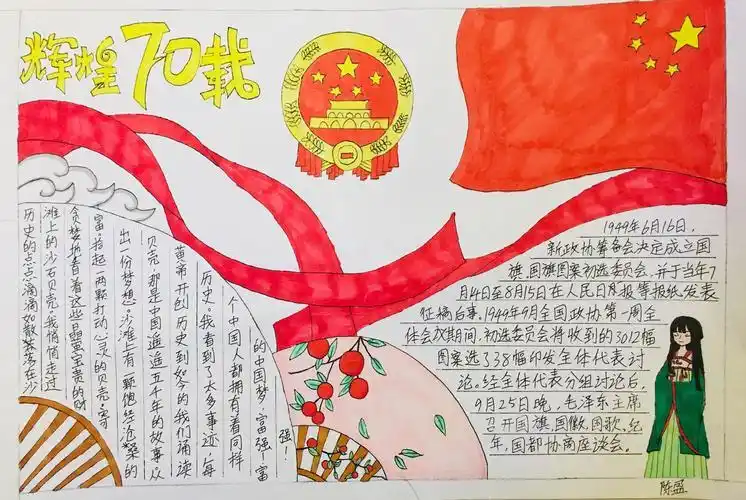 辉煌70载
历史的点点滴滴如散落在沙
滩上的沙石贝壳,我悄悄走过
贪梦地看看这些晶莹宝贵的财
富,拾起一颗颗打动心灵的贝壳,寄
出一份梦想。沙滩上有一颗饱经沧桑的
贝壳,那是中国遥遥五千年的故事,从
黄帝开创历史到如今的我们诵读
历史,我看到了太多事迹,每
个中国人都拥有着同样
的中国梦,富强,富
强!
1949年6月16日,
新政协筹备会决定成立国
旗、国旗图案初选委员会,并于当年7
月14日至8月15日在人民日报等报纸发表
征稿启事,1949年9月全国政协第一届全
体会议期间,初选委员会将收到的3012幅
图案选了38幅印发全体代表讨
论。经全体代表分组讨论后,
9月25日晚,毛泽东主席
召开国旗、国徽、国歌、纪
年、国都协商座谈会。
陈盈